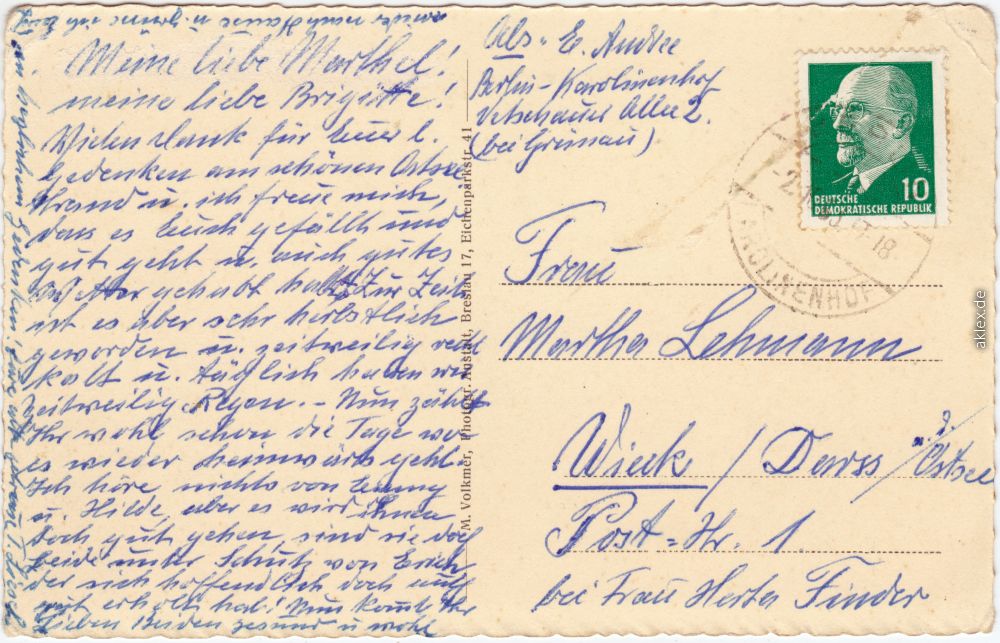 Meine liebe Marthel!
meine liebe Brigitte!
Vielen Dank für Euer l.
Gedenken am schönen Ostsee
strand u. ich freue mich,
dass es Euch gefällt und
gut geht u. auch gutes
Wetter gehabt habt. Zur Zeit
ist es aber sehr herbstlich
geworden u. zeitweilig recht
kalt u. täglich haben wir
zeitweilig Regen. - Nun zählt
Ihr wohl schon die Tage wo
es wieder heimwärts geht.
Ich höre nichts von
u. Hilde, aber es wird ihnen
doch gut gehen, sind sie doch
beide unter Schutz von Erich
der sich hoffendlich doch auch
gut erholt hat! Nun kommt Ihr
Lieben Beiden gesund u wohl
wieder nach Hause u. grüsse ich Euch
M. Volkmer, Photogr. Anstalt, Breslau 17, Eichenparkstr. 41
Abs. E. Andree
Berlin-Karolinenhof
Vetschauer Allee 2.
(bei Grünau)
10
DEUTSCHE
DEMOKRATISCHE REPUBLIK
18
KAROLINENHOF
Frau
Martha Lehmann
Wieck / Darss / Ostsee
Post-Str. 1.
bei Frau Herta Finder
aklex.de